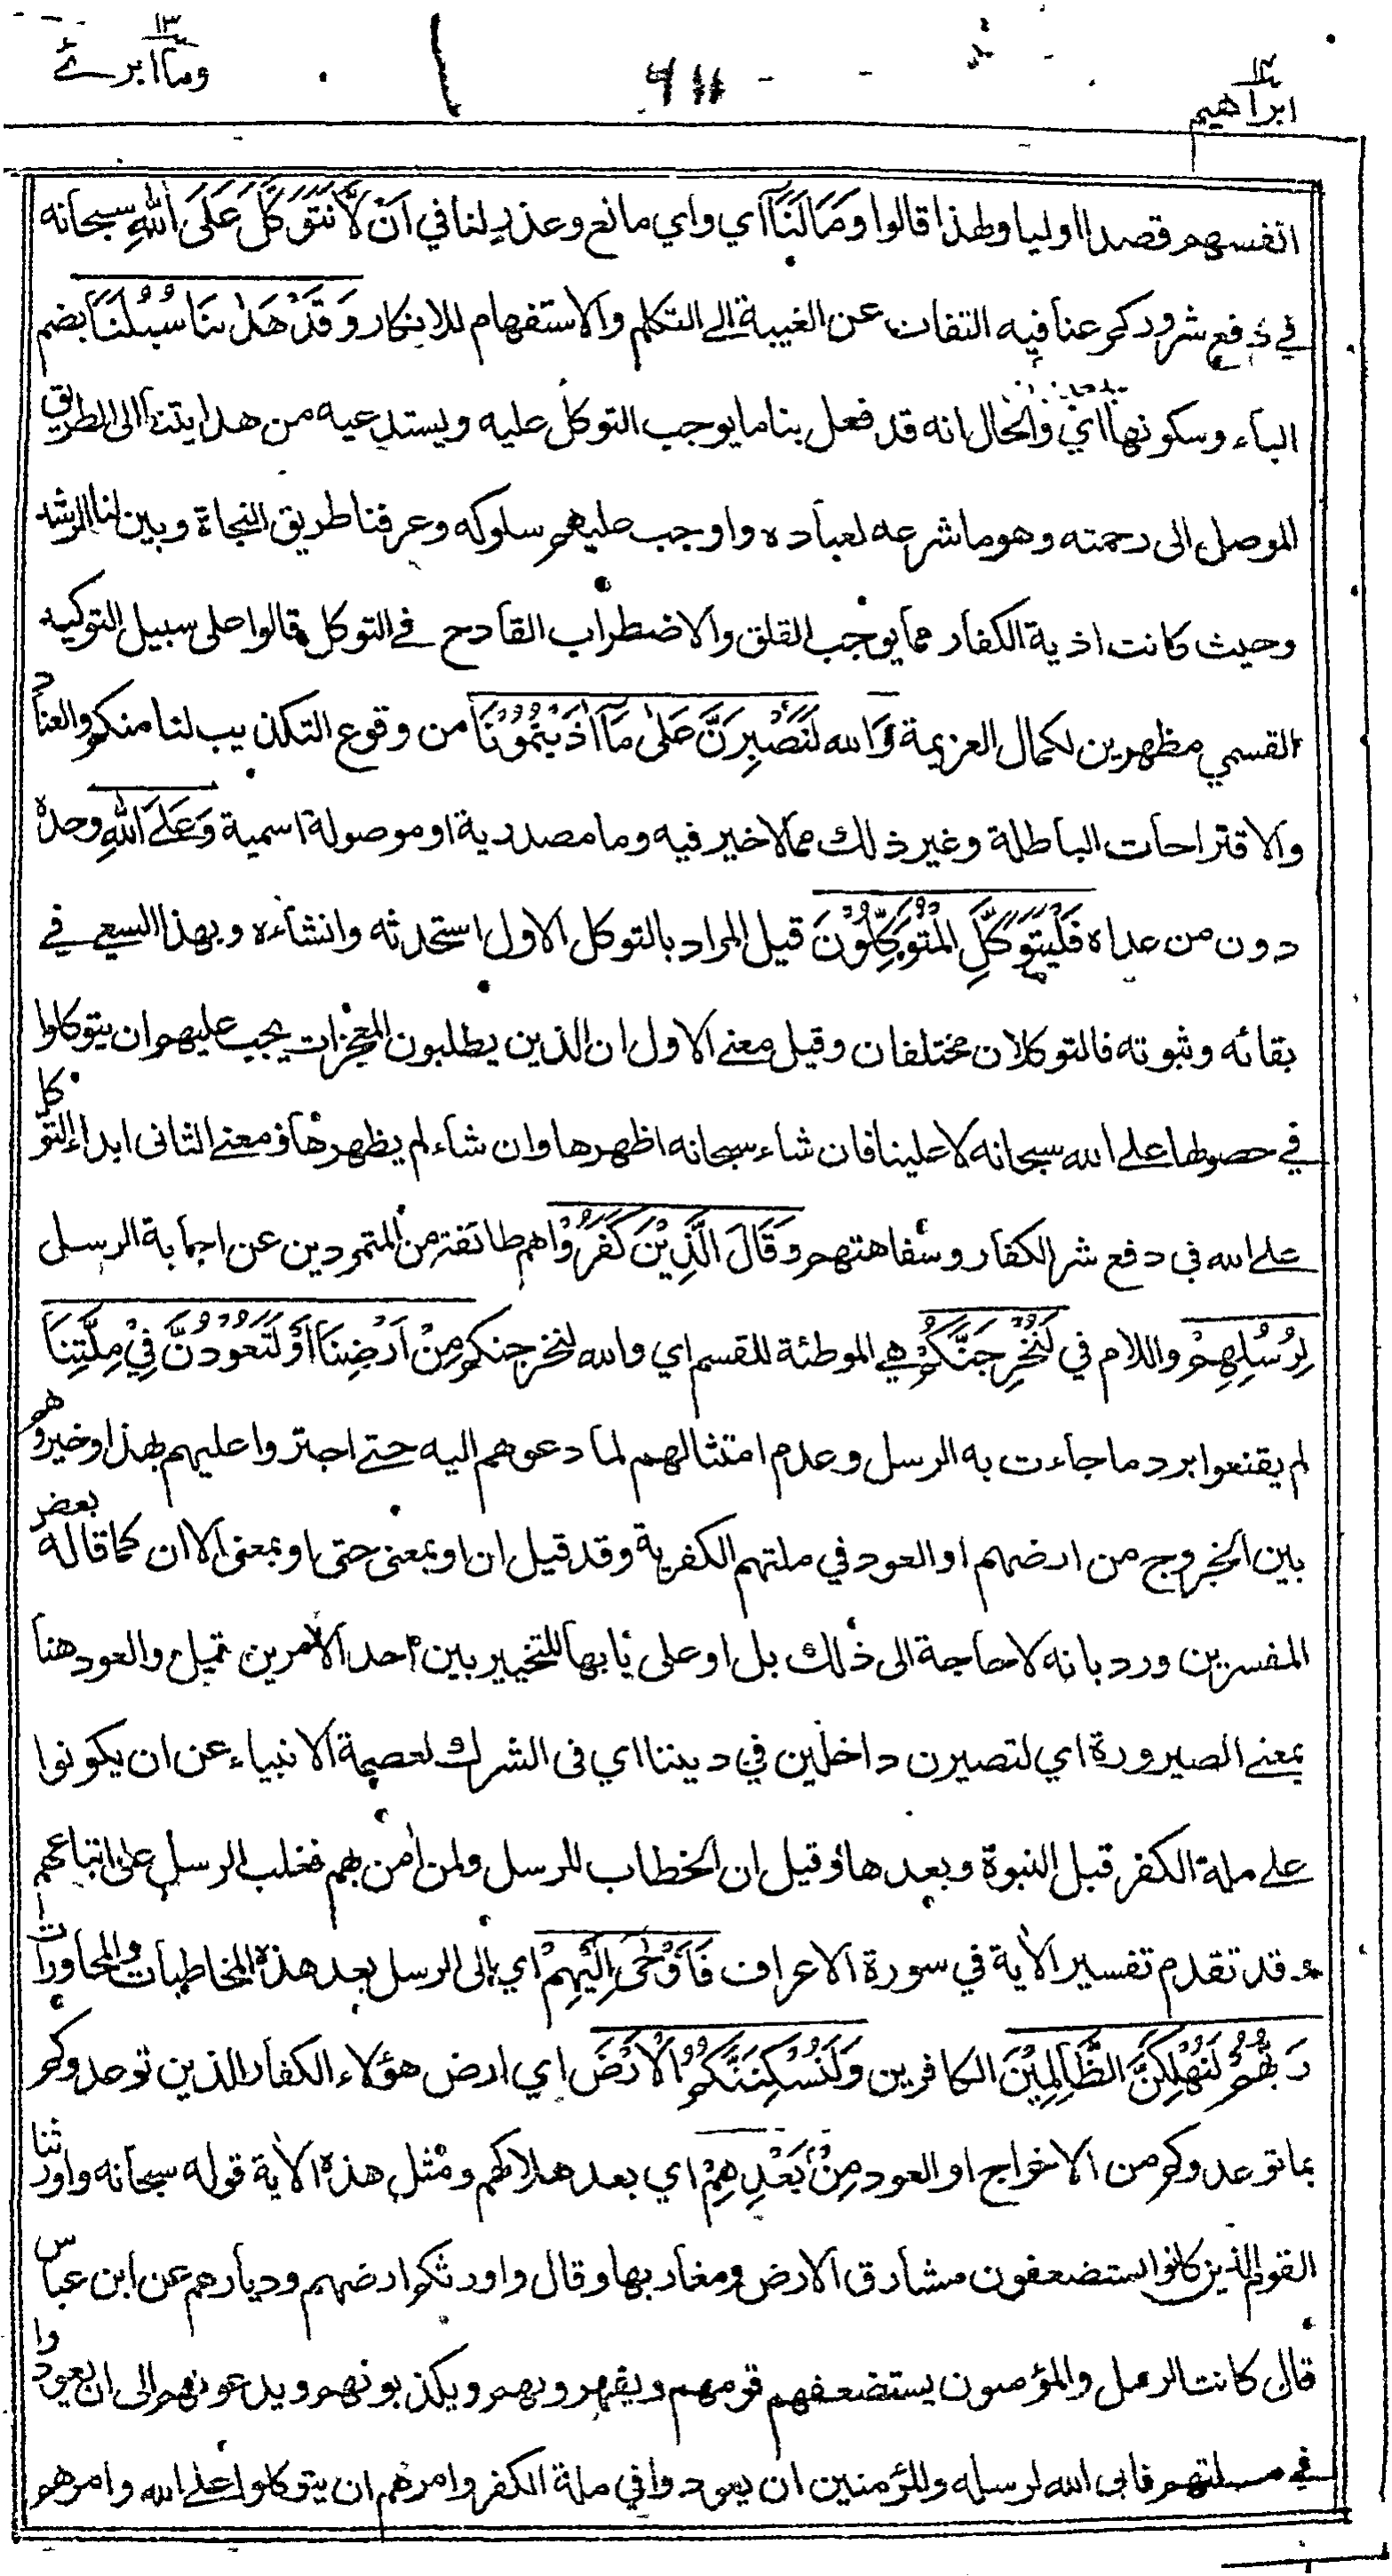 ابراهيم ١٤
٦١١
وما ابرئ ١٣
انفسهم قصدا اوليا ولهذا قالوا وَمَا لَنَا اي واي مانع وعذر لنا في اَنْ لَّا نَتَوَكَّلَ عَلَى اللهِ سبحانه
في دفع شروركم عنا فيه التفات عن الغيبة الى التكلم والاستفهام للانكار وَقَدْ هَدٰىنَا سُبُلَنَا بضم
الباء وسكونها اي والحال انه قد فعل بنا ما يوجب التوكل عليه ويستدعيه من هدايتنا الى الطريق
الموصل الى رحمته وهو ما شرعه لعباده واوجب عليهم سلوكه وعرفنا طريق النجاة وبين لنا الرشد
وحيث كانت اذية الكفار مما يوجب القلق والاضطراب القادح في التوكل قالوا على سبيل التوكيد
القسمي مظهرين لكمال العزيمة وَالله لَنَصْبِرَنَّ عَلٰى مَآ اٰذَيْتُمُوْنَا من وقوع التكذيب لنا منكم والعناد
والاقتراحات الباطلة وغير ذلك مما لا خير فيه وما مصدرية او موصولة اسمية وَعَلَى اللهِ وحده
دون من عداه فَلْيَتَوَكَّلِ الْمُتَوَكِّلُوْنَ قيل المراد بالتوكل الاول استحدثه وانشاءه وبهذا السعي في
بقائه وثبوته فالتوكلان مختلفان وقيل معنى الاول ان الذين يطلبون المعجزات يجب عليهم ان يتوكلوا
في حصولها على الله سبحانه لا علينا فان شاء سبحانه اظهرها وان شاء لم يظهرها ومعنى الثاني ابداء التوكل
على الله في دفع شر الكفار وسفاهتهم وَقَالَ الَّذِيْنَ كَفَرُوْا هم طائفة من المتمردين عن اجابة الرسل
لِرُسُلِهِمْ واللام في لَنُخْرِجَنَّكُمْ هي الموطئة للقسم اي والله لنخرجنكم مِنْ اَرْضِنَا اَوْ لَتَعُوْدُنَّ فِيْ مِلَّتِنَا
لم يقنعوا برد ما جاءت به الرسل وعدم امتثالهم لما دعوهم اليه حتى اجترءوا عليهم بهذا وخيروهم
بين الخروج من ارضهم او العود في ملتهم الكفرية وقد قيل ان او بمعنى حتى او بمعنى الا ان كما قاله بعض
المفسرين ورد بانه لا حاجة الى ذلك بل او على بابها للتخيير بين احد الامرين قيل والعود هنا
بمعنى الصيرورة اي لتصيرن داخلين في ديننا اي في الشرك لعصمة الانبياء عن ان يكونوا
على ملة الكفر قبل النبوة وبعدها وقيل ان الخطاب للرسل ولمن آمن بهم فغلب الرسل على اتباعهم
وقد تقدم تفسير الاٰية في سورة الاعراف فَاَوْحٰى اِلَيْهِمْ اي الى الرسل بعد هذه المخاطبات والمحاورات
رَبُّهُمْ لَنُهْلِكَنَّ الظَّالِمِيْنَ الكافرين وَلَنُسْكِنَنَّكُمُ الْاَرْضَ اي ارض هؤلاء الكفار الذين توعدوكم
بما توعدوكم من الاخراج او العود مِنْ بَعْدِهِمْ اي بعد هلاكهم ومثل هذه الاٰية قوله سبحانه واورثنا
القوم الذين كانوا يستضعفون مشارق الارض ومغاربها وقال واورثكم ارضهم وديارهم عن ابن عباس
قال كانت الرسل والمؤمنون يستضعفهم قومهم ويقهرونهم ويكذبونهم ويدعونهم الى ان يعودوا
في ملتهم فابى الله لرسله وللمؤمنين ان يعودوا في ملة الكفر وامرهم ان يتوكلوا على الله وامرهم